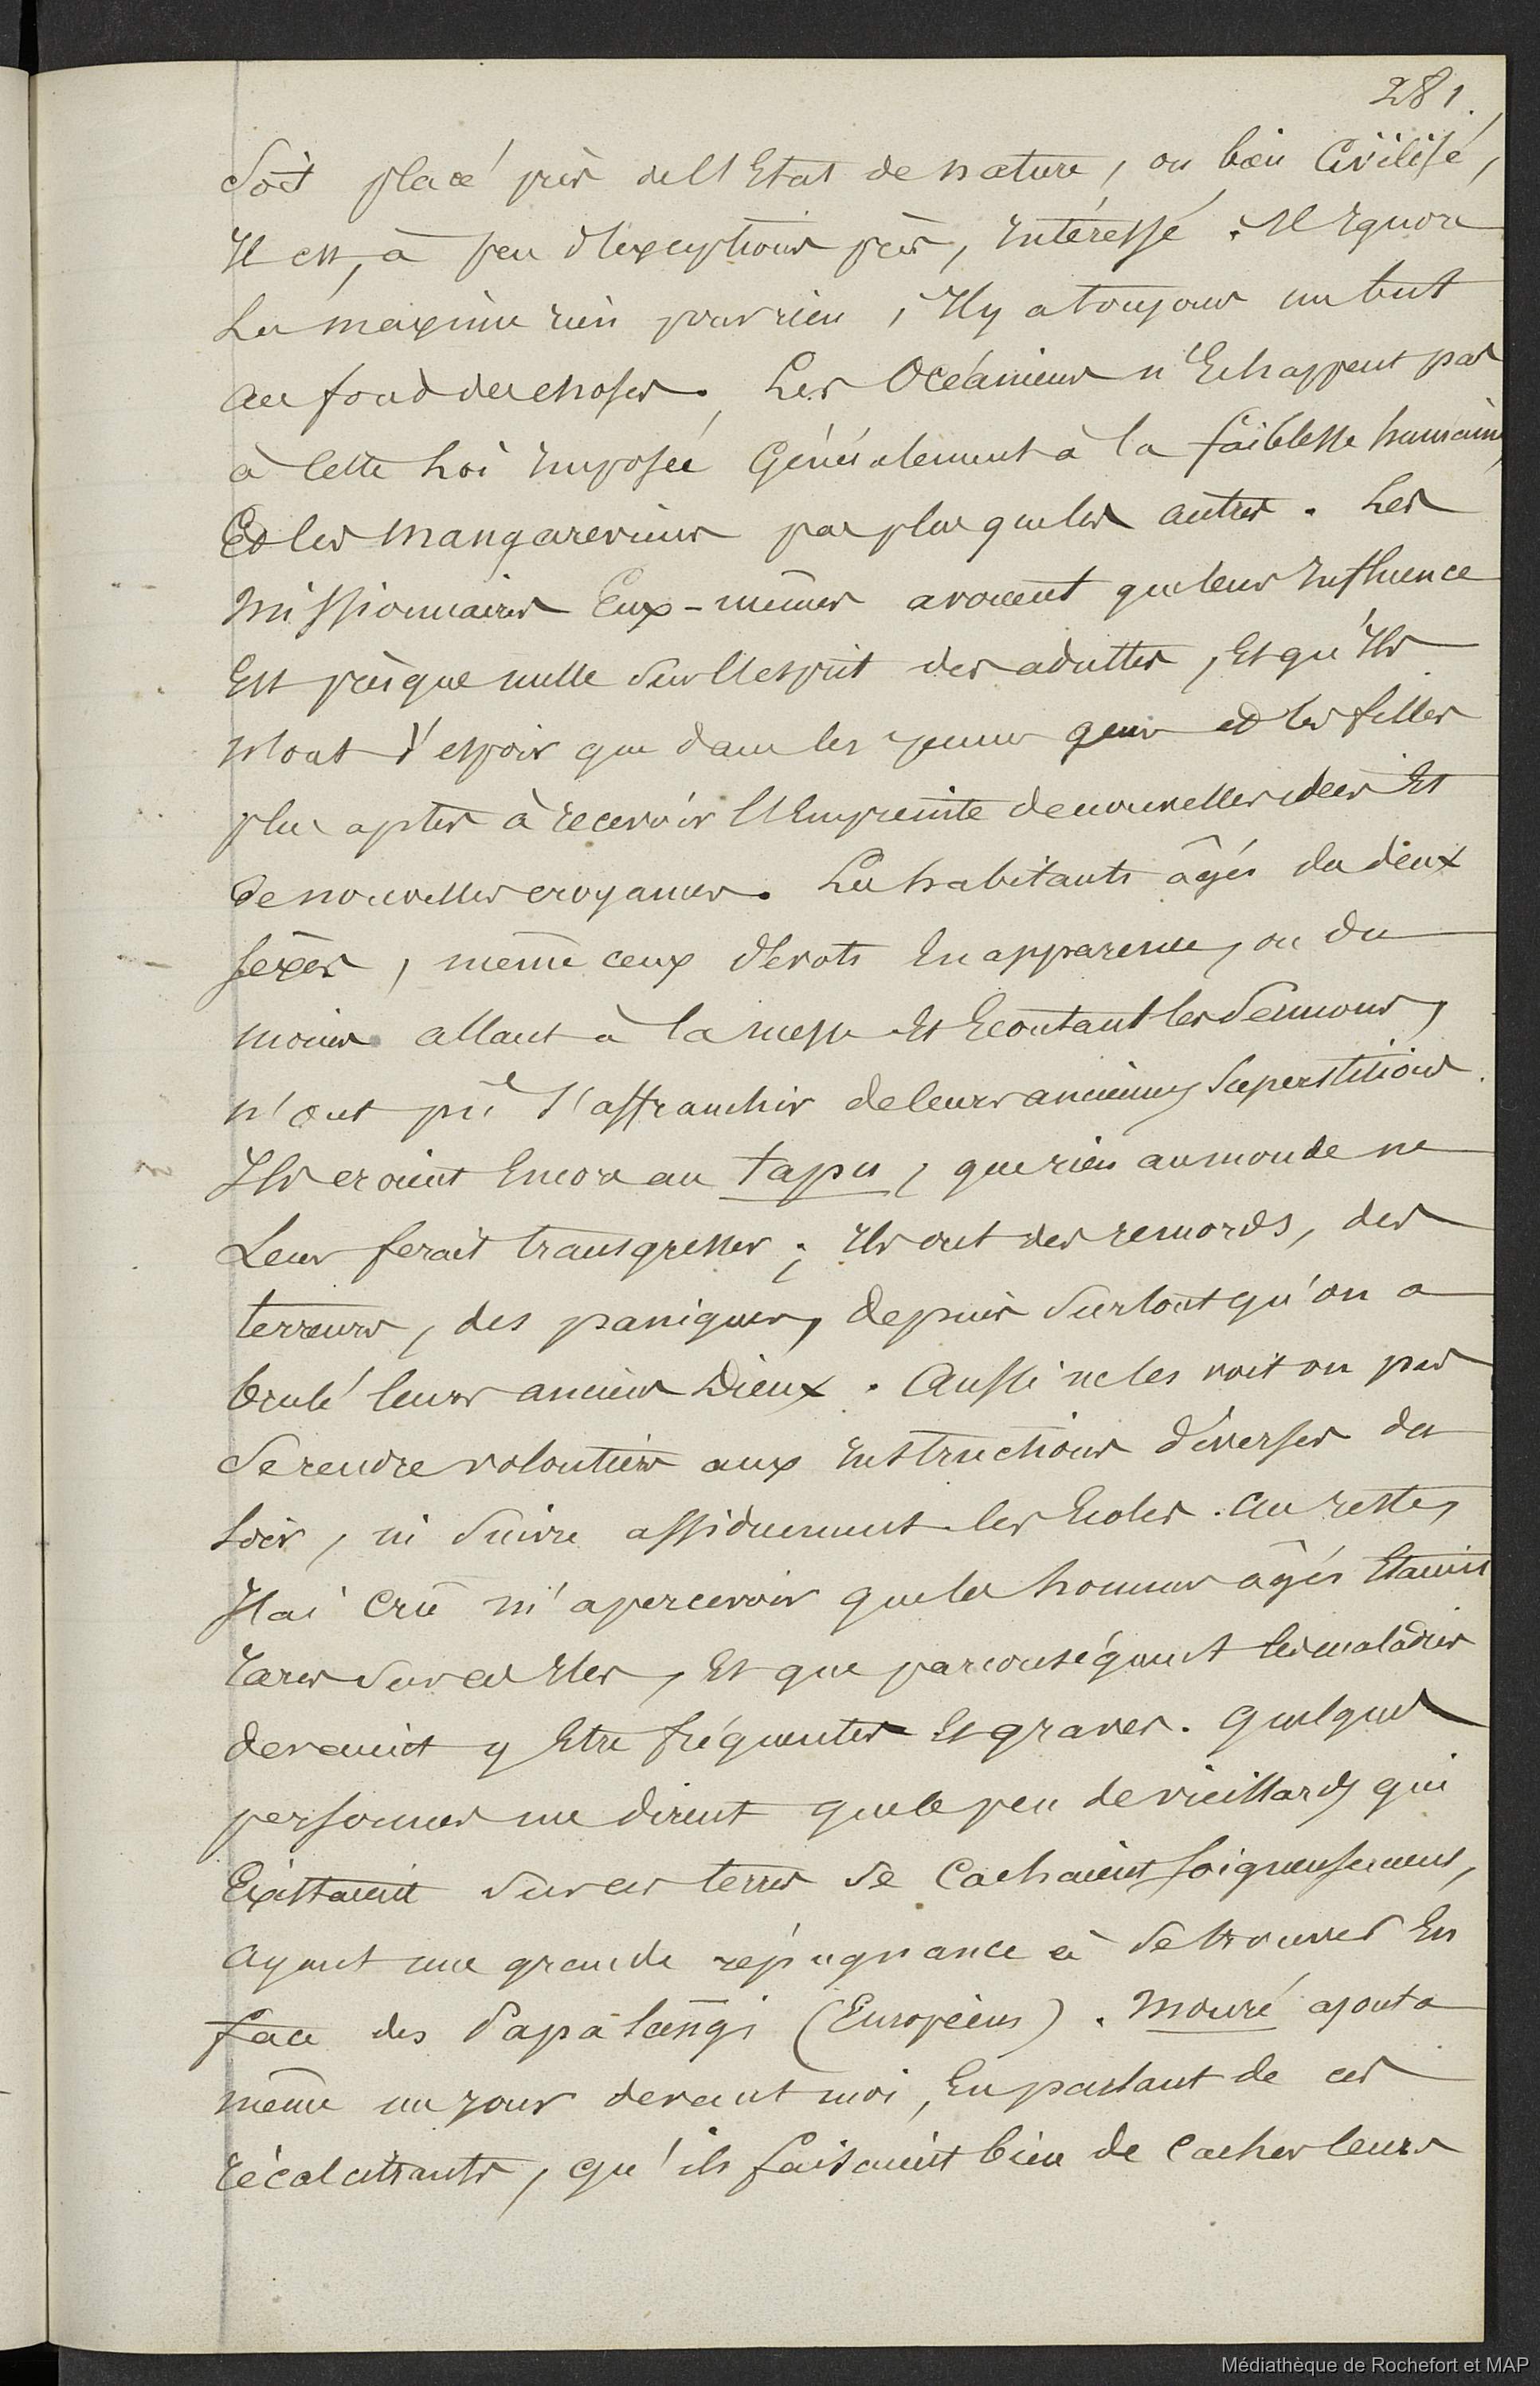 281.
Soit placé près de l'Etat de nature, ou bien Civilisé,
Il est, à peu d'exceptions près, Intéressé. Il Ignore
La maxime rien pour rien, Il y a toujours un but
Au fond des choses. Les Océaniens n'Echappent pas
à cette Loi Imposée Généralement à la faiblesse humaine,
Et les Mangareviens pas plus que les autres. Les
Missionnaires Eux-mêmes avouent que leur Influence
Est presque nulle Sur l'esprit des adultes, Et qu'Ils
N'ont d'espoir que dans les jeunes gens et les filles
plus aptes à recevoir l'Empreinte de nouvelles idées Et
de nouvelles croyances. Les habitants âgés des deux
sexes, même ceux dévots En apparence, ou du
moins allant à la messe Et Ecoutant les Sermons,
n'ont pû S'affranchir de leurs anciennes Superstitions.
Ils croient Encore au tapu, que rien au monde ne
Leur ferait transgresser ; Ils ont des remords, des
terreurs, des paniques, depuis Surtout qu'on a
brulé leurs anciens Dieux. Aussi ne les voit on pas
Se rendre volontiers aux Instructions diverses du
Soir, ni Suivre assiduement les Ecoles. Au reste,
J'ai Crû m'apercevoir que les hommes âgés Etaient
rares Sur ces Iles, Et que par conséquent les maladies
devaient y Etre fréquentes Et graves. Quelques
personnes me dirent que le peu de vieillards qui
Existaient Sur ces terres Se Cachaient soigneusement,
Ayant une grande répugnance à Se trouver En
face des Papalangi (Européens). Mouré ajouta
même un jour devant moi, En parlant de ces
récalcitrants, qu'ils faisaient bien de Cacher leurs
Médiathèque de Rochefort et MAP